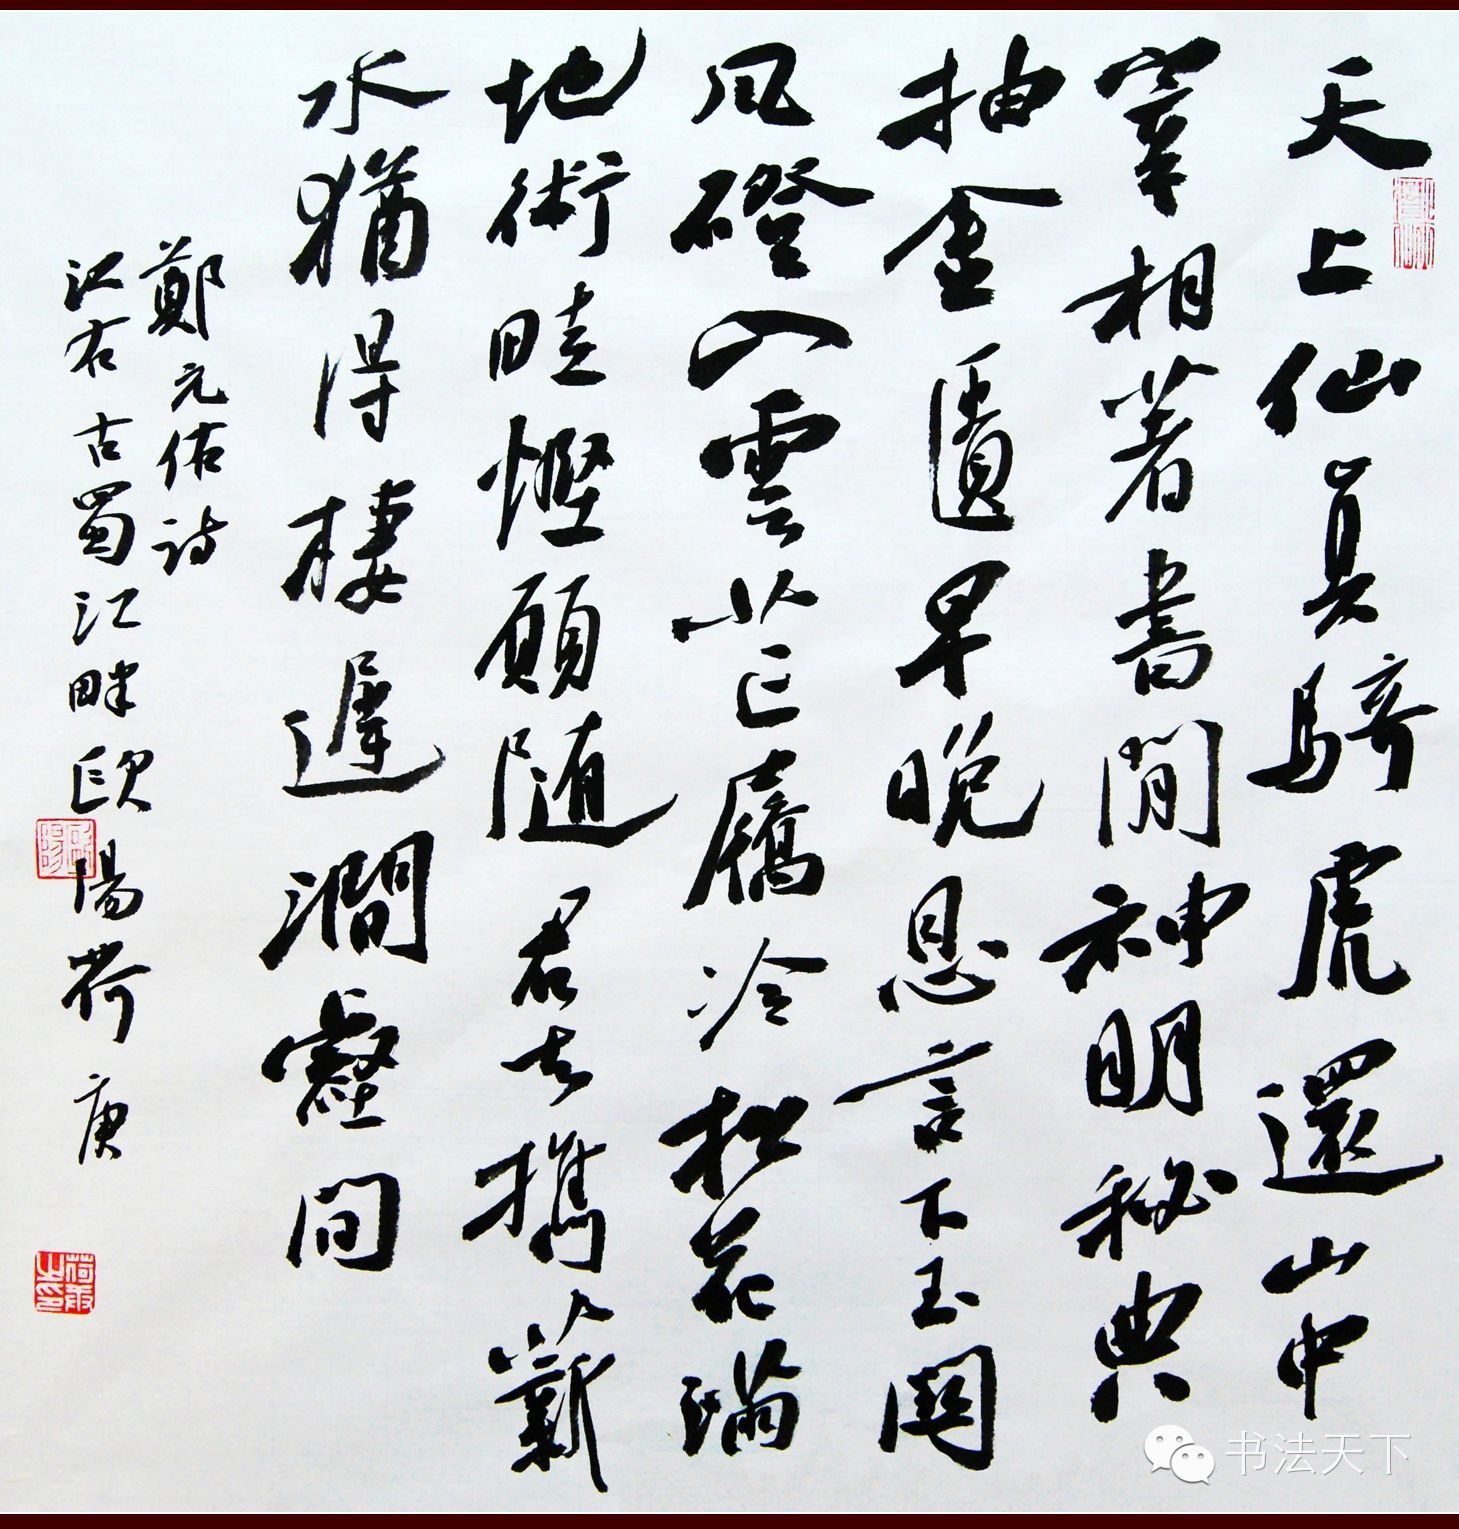 天上仙真騎虎還山中
宰相著書閒神明秘典
抽金匱早晚恩言下玉關
風磴入雲芒屩冷松花滿
地術畦慳願随君去携薪
水猶得棲遲澗壑間
鄭元佑詩
江右古蜀江畔欧陽荷庚
书法天下